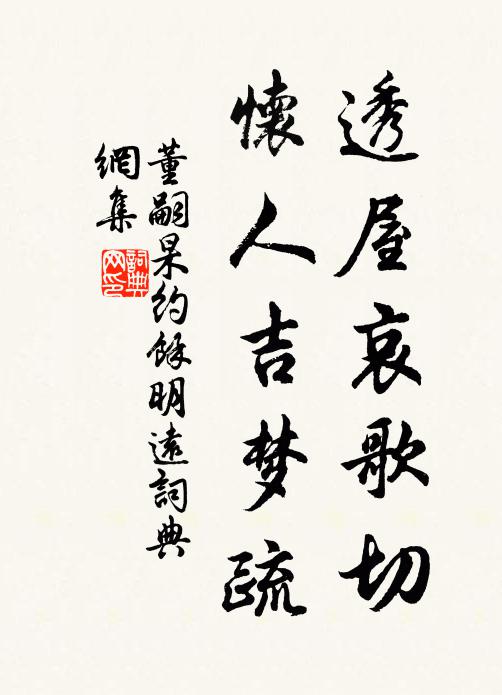 透屋哀歌切
懷人吉梦疏
董嗣杲約馀明遠詞典
網集
詞典
网印